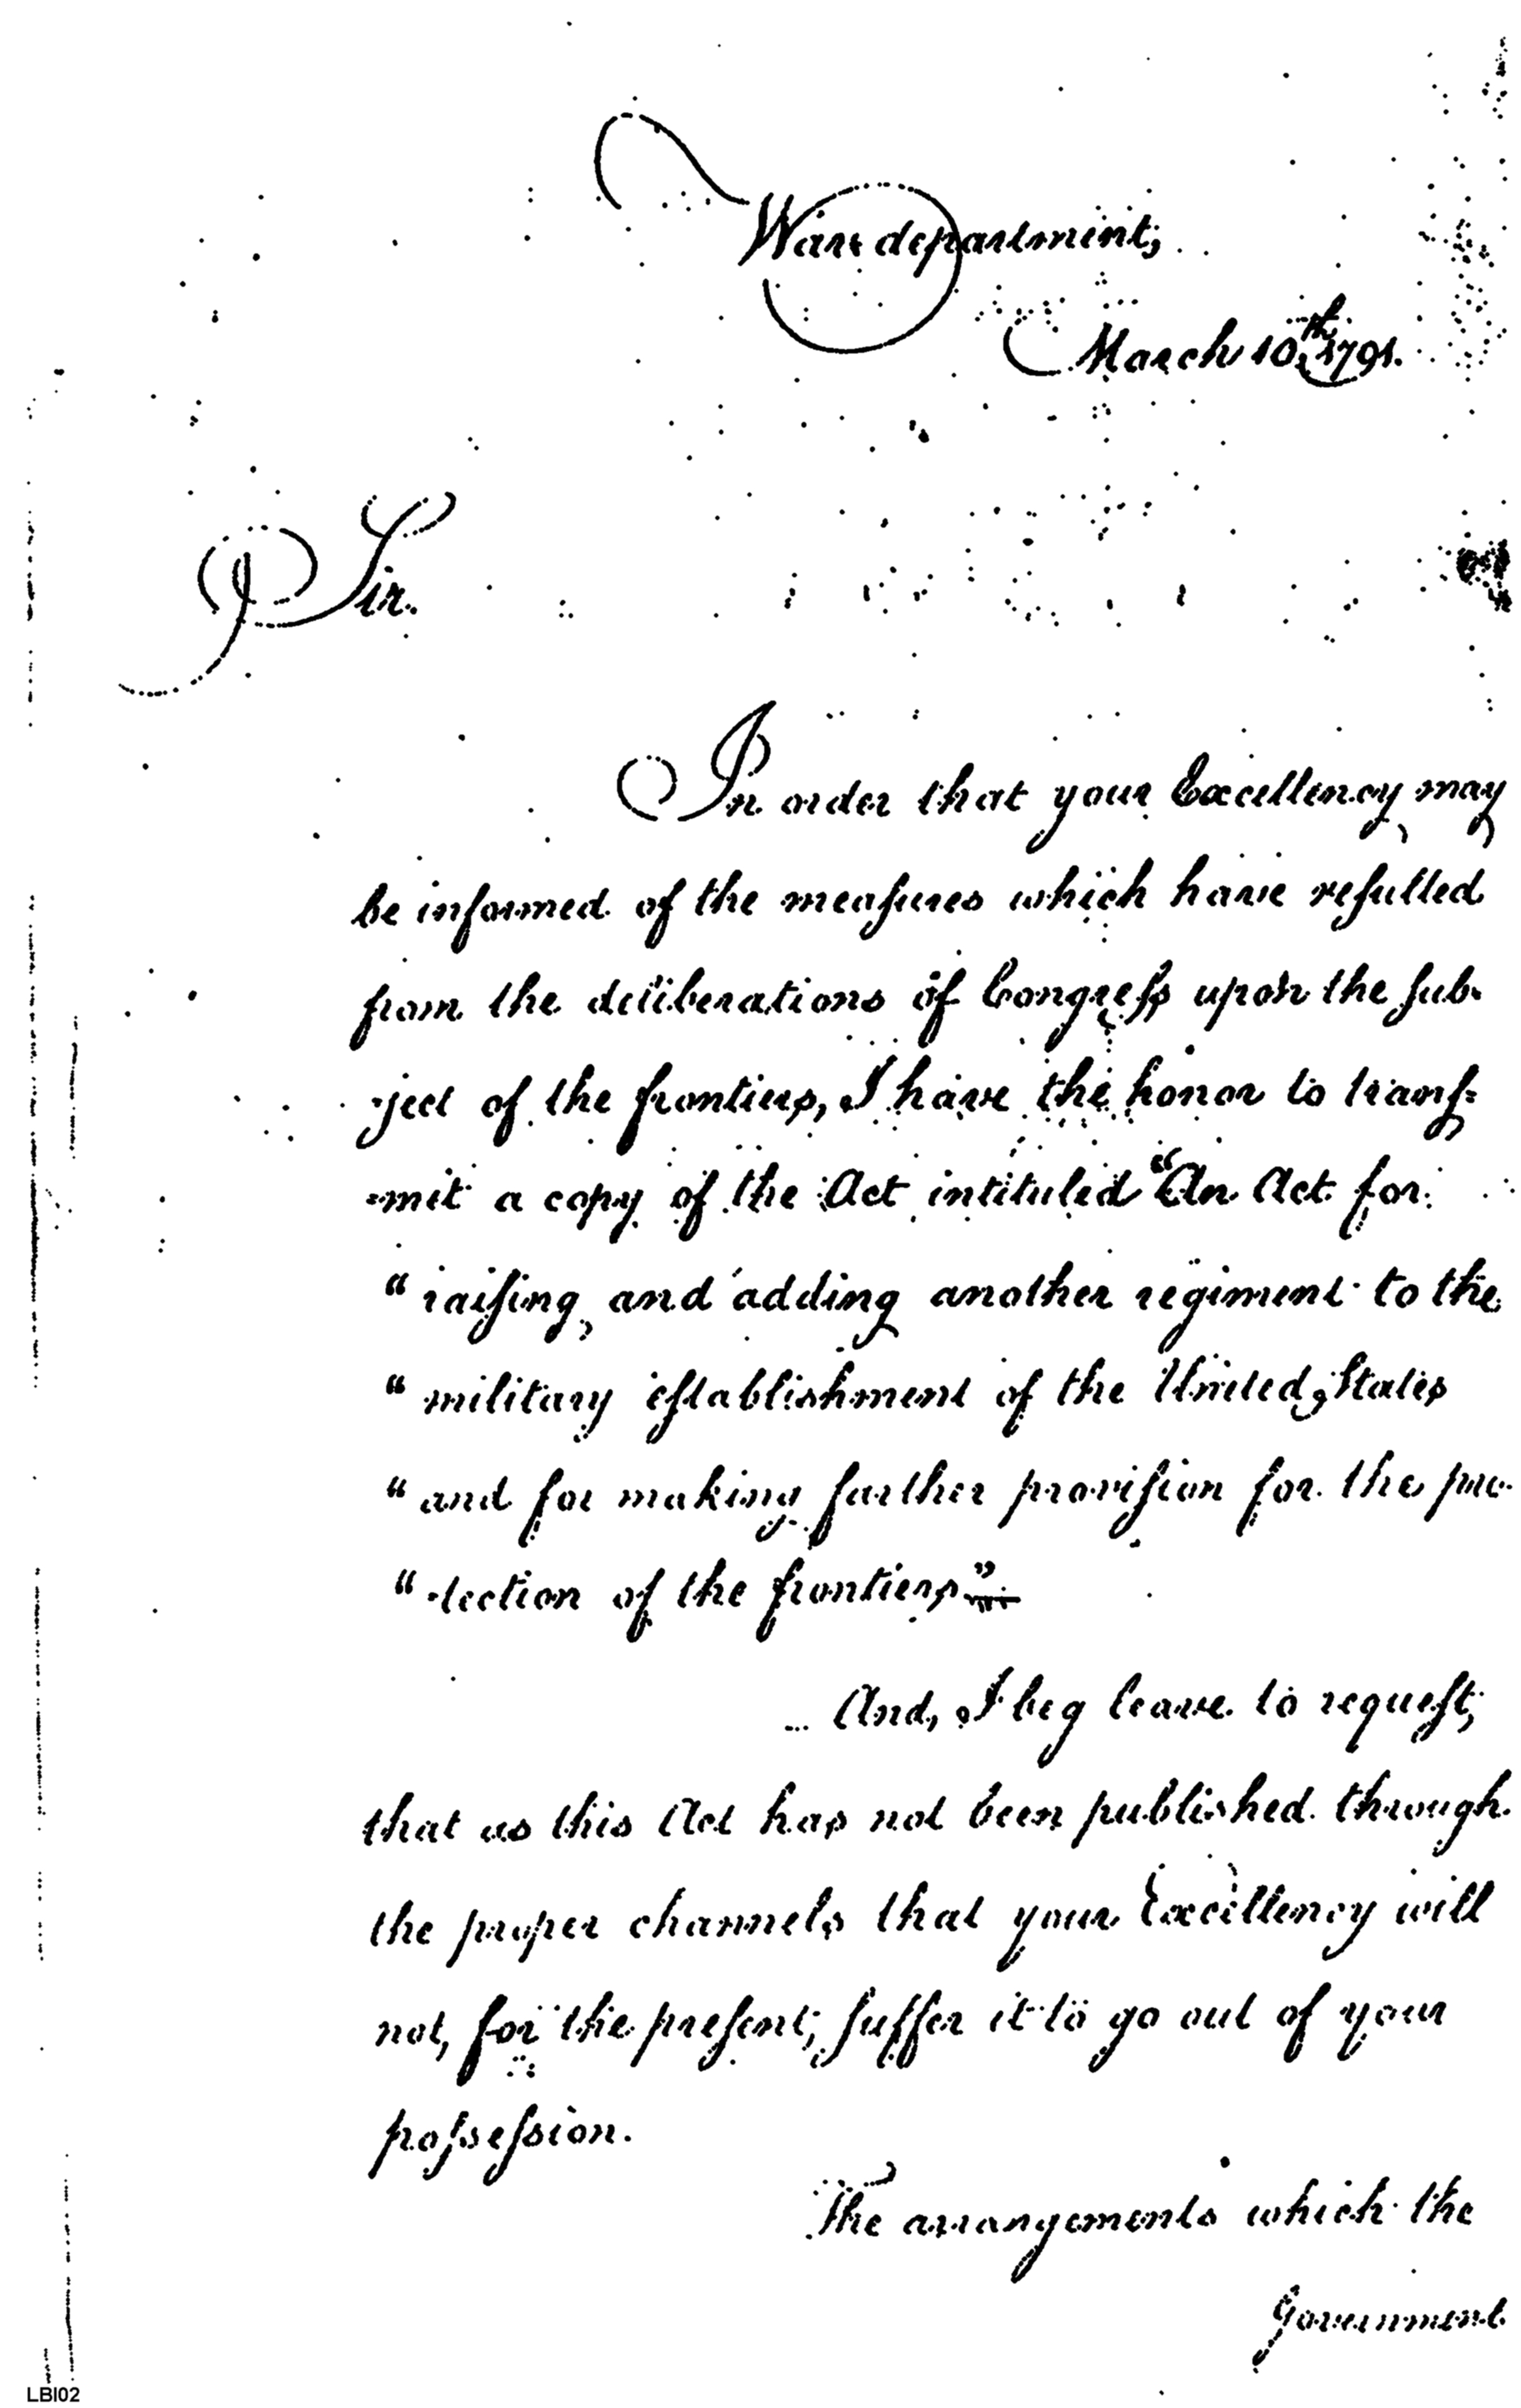 War department,
March 10th 1791.
Sir.
In order that your Excellency may
be informed of the meaſures which have reſulted
from the deliberations of Congreſs upon the ſub-
-ject of the frontiers, I have the honor to tranſ=
=mit a copy of the Act intituled "An Act for
"raiſing and adding another regiment to the
"military eſtablishment of the United States
"and for making further proviſion for the pro-
"-tection of the frontiers"—
And, I beg leave to requeſt,
that as this Act has not been published through
the proper channels that your Excellency will
not, for the preſent, ſuffer it to go out of your
poſseſsion.
The arrangements which the
Government
LBI02